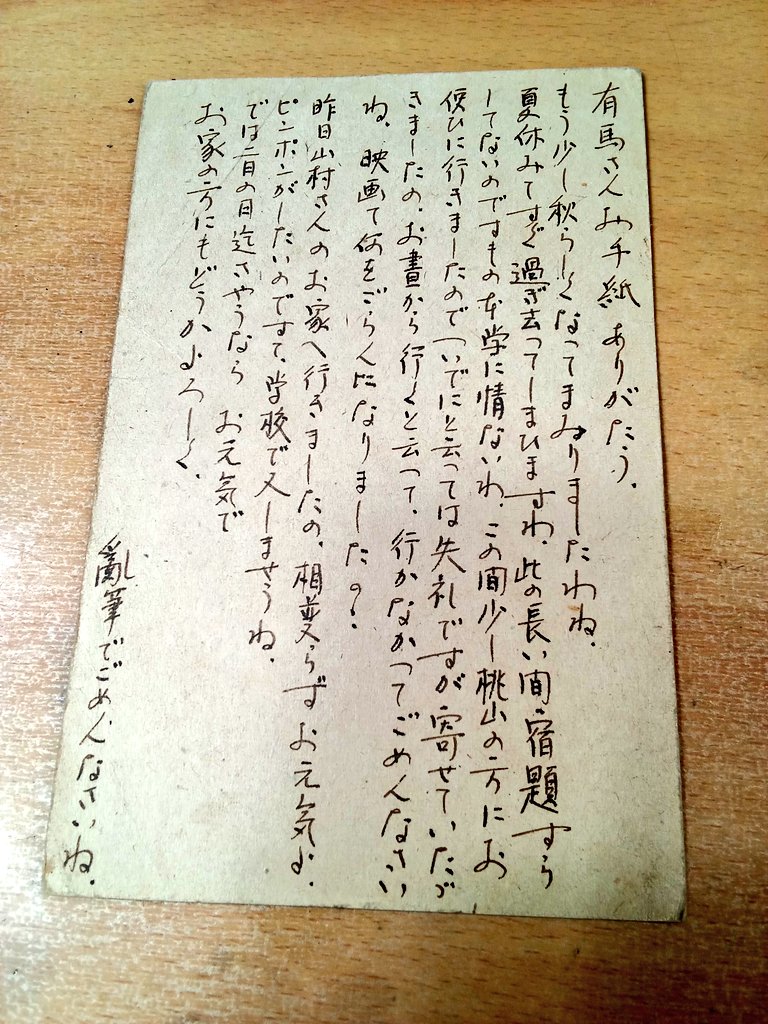 有馬さんお手紙ありがたう。
もう少し秋らしくなってまゐりましたわね。
夏休みてすぐ過ぎ去ってしまひますわ。此の長い間、宿題すら
してないのですもの本学に情ないわ。この間少し桃山の方にお
使ひに行きましたのでついでにと云っては失礼ですが寄せていたゞ
きましたの。お晝から行くと云って、行かなかってごめんなさい
ね。映画て何をごらんになりましたの?
昨日山村さんのお家へ行きましたの。相変らずお元気よ。
ピンポンがしたいのですて、学校で又しませうね。
では一日の日迄さやうなら お元気で
お家の方にもどうかよろしく。
亂筆でごめんなさいね。